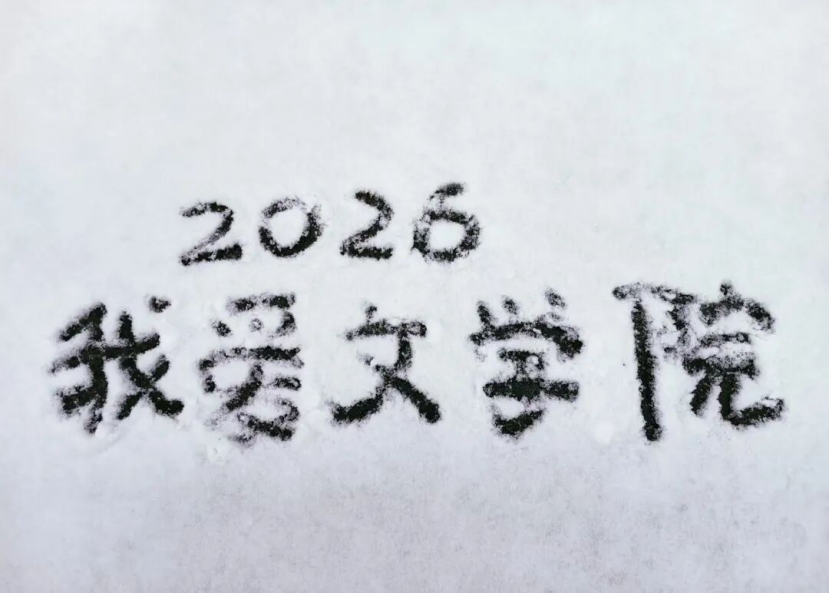 2026
我爱文学院